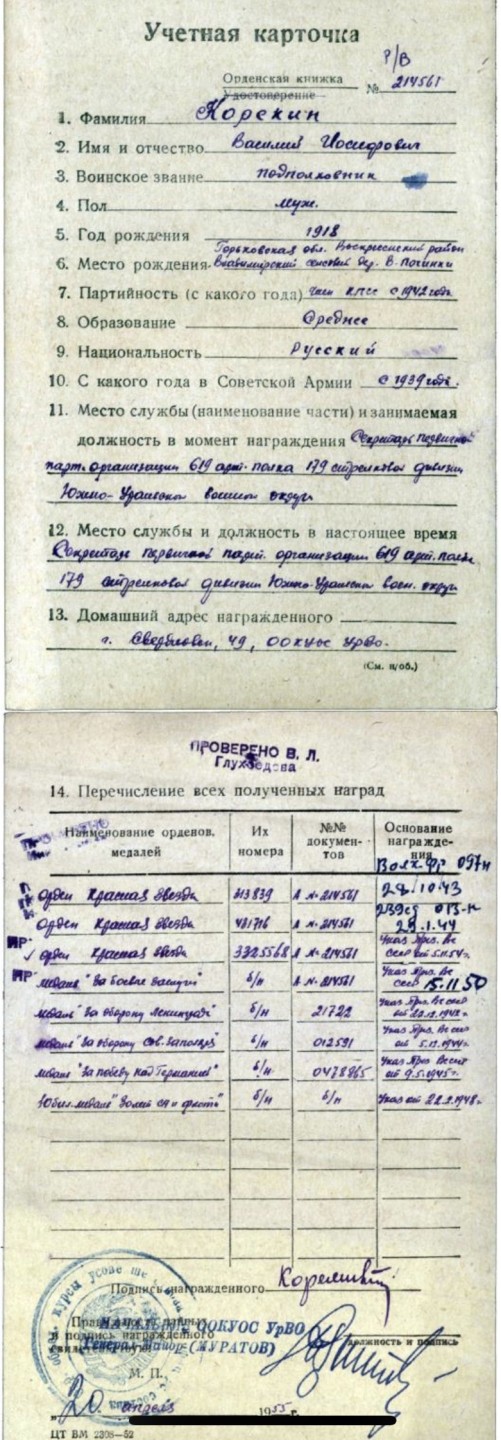 Учетная карточка
Р/В
Орденская книжка
Удостоверение № 214561
1. Фамилия Корекин
2. Имя и отчество Василий Иосифович
3. Воинское звание подполковник
4. Пол муж.
5. Год рождения 1918
Горьковская обл. Воскресенский район
6. Место рождения Владимирский сельсовет дер. В-Починки
7. Партийность (с какого года) член КПСС с 1942 года
8. Образование Среднее
9. Национальность Русский
10. С какого года в Советской Армии с 1939 года.
11. Место службы (наименование части) и занимаемая
должность в момент награждения Секретарь первичной
парт. организации 619 арт. полка 179 стрелковой дивизии
Южно-Уральского военного округа
12. Место службы и должность в настоящее время
Секретарь первичной парт. организации 619 арт. полка
179 стрелковой дивизии Южно-Уральского воен. округа
13. Домашний адрес награжденного
г. Свердловск, 49, ООКУОС УрВО.
(См. н/об.)
ПРОВЕРЕНО В. Л.
14. Перечисление всех полученных наград
Наименование орденов, медалей
Их номера
№№ докумен-тов
Основание награжде-ния
Волх. Фр 097н
орден Красная звезда 313839 А № 214561 28.10.43
239сд 013-н
орден Красная звезда 481716 А № 214561 29.1.44
орден Красная звезда 3325568 А № 214561 Указ През. Вс СССР от 5.11.54г.
медаль "За боевые заслуги" б/н А № 214561 Указ През. Вс СССР 15.11.50
медаль "За оборону Ленинграда" б/н 21722 Указ През. Вс СССР от 22.12.1942г.
медаль "За оборону Сов. Заполярья" б/н 012591 Указ През. Вс СССР от 5.12.1944г.
медаль "За победу над Германией" б/н 0478865 Указ През. Вс СССР от 9.5.1945г.
Юбил. медаль "30 лет СА и флота" б/н б/н Указ от 22.2.1948г.
Подпись награжденного
Правильность данных
и подпись награжденного
НАЧАЛЬНИК ООКУОС УрВО
Генерал-майор (МУРАТОВ)
должность и подпись
М. П.
20 апреля 1955 г.
ЦТ ВМ 2308—52